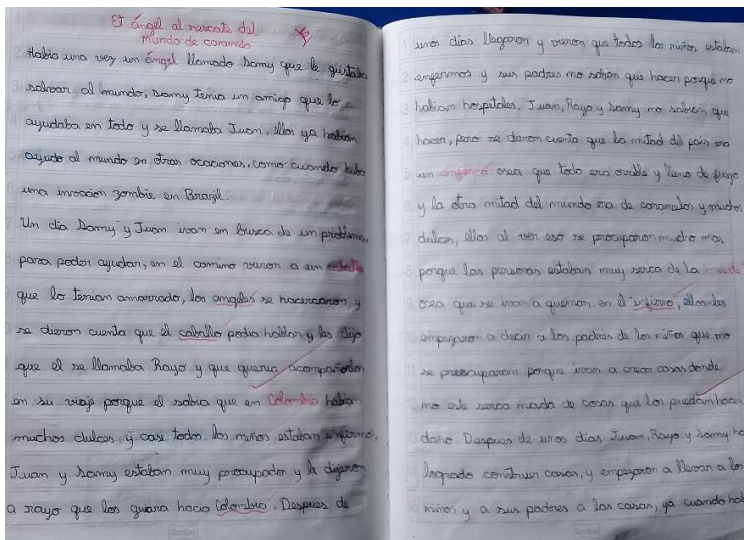 El ángel al rescate del
mundo de caramelo
Habia una vez un ángel llamado Samy que le gustaba
salvar al mundo, Samy tenia un amigo que lo
ayudaba en todo y se llamaba Juan, ellos ya habian
ayudo al mundo en otras ocaciones, como cuando hubo
una invacion zombie en Brazil.
Un dia Samy y Juan ivan en busca de un problema,
para poder ayudar, en el camino vieron a un caballo
que lo tenian amarrado, los angeles se hacercaron y
se dieron cuenta que el caballo podia hablar y les dijo
que el se llamaba Rayo y que queria acompañarlos
en su viaje porque el sabia que en Colombia habian
muchos dulces y casi todos los niños estaban enfermos,
Juan y Samy estaban muy preocupados y le dijeron
a rayo que los guiara hacia Colombia. Despues de
unos días llegaron y vieron que todos los niños estaban
enfermos y sus padres no sabian que hacer porque no
habian hospitales, Juan, Rayo y Samy no sabian que
hacer, pero se dieron cuenta que la mitad del pais era
un osea que todo era orrible y lleno de fuego
y la otra mitad del mundo era de caramelos y muchos
dulces, ellos al ver eso se preocuparon mucho mas
porque las personas estaban muy serca de la
osea que se ivan a quemar, en el infierno, ellos les
empezaron a decir a los padres de los niños que no
se preocuparan porque ivan a crear casas donde
no este serca nada de cosas que los puedan hacer
daño. Despues de unos días Juan, Rayo y Samy ha
logrado construir casas, y empezaron a llevar a los
niños y a sus padres a las casas, ya cuando hab